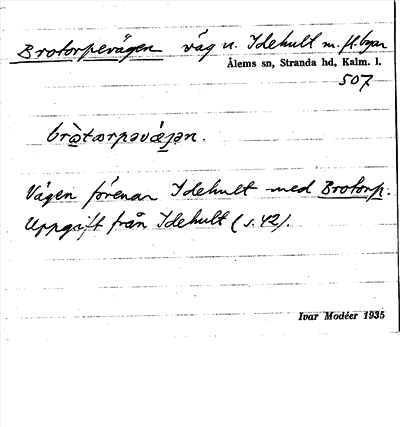 Brotorpevägen väg n. Idehult m. fl. byar
Ålems sn, Stranda hd, Kalm. l.
507
bròtærpəvæ̀jən.
Vägen förenar Idehult med Brotorp.
Uppgift från Idehult (s. 42).
Ivar Modéer 1935